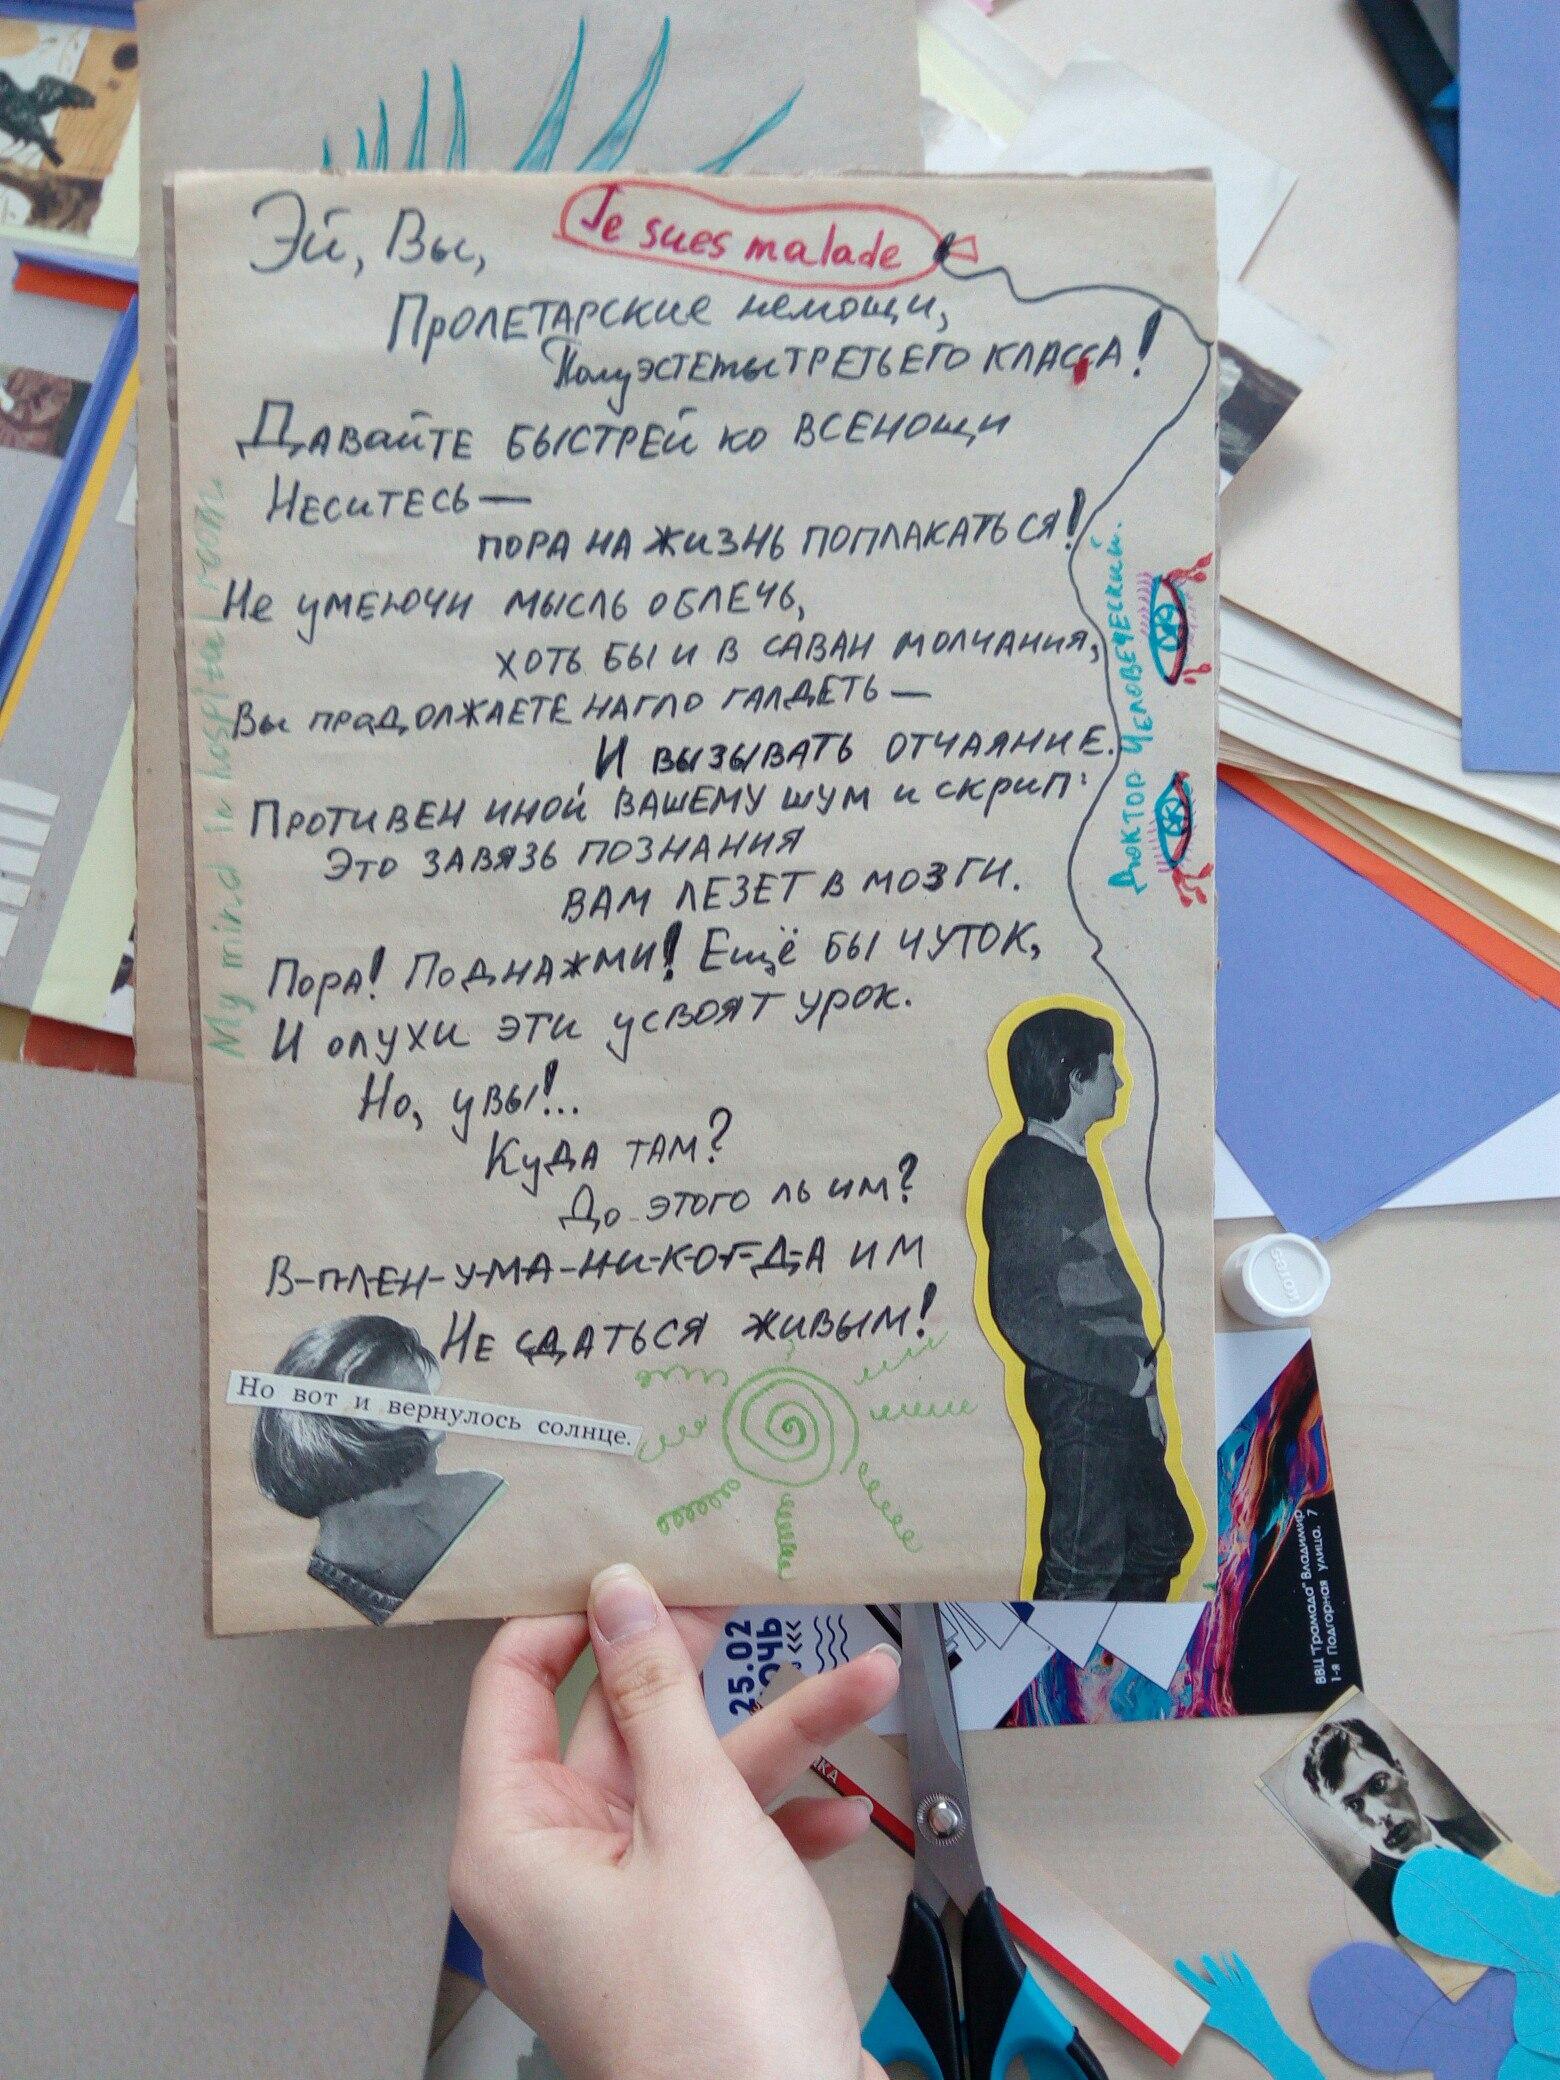 Эй, Вы,
Je sues malade
Пролетарские немощи,
Полуэстеты третьего класса!
Давайте быстрей ко всенощи
Неситесь —
пора на жизнь поплакаться!
Не умеючи мысль облечь,
хоть бы и в саван молчания,
Вы прадолжаете нагло галдеть —
И вызывать отчаяние.
Противен иной вашему шум и скрип:
Это завязь познания
вам лезет в мозги.
Пора! Поднажми! Ещё бы чуток,
И олухи эти усвоят урок.
Но, увы!...
Куда там?
До этого ль им?
В-плен-у-м-а-ни-к-о-г-д-а им
Не сдаться живым!
Но вот и вернулось солнце.
My mind in hospital room.
Доктор Человеческий.
25.02
ВВЦ "Грамада" Владимир
1-я Подгорная улица, 7